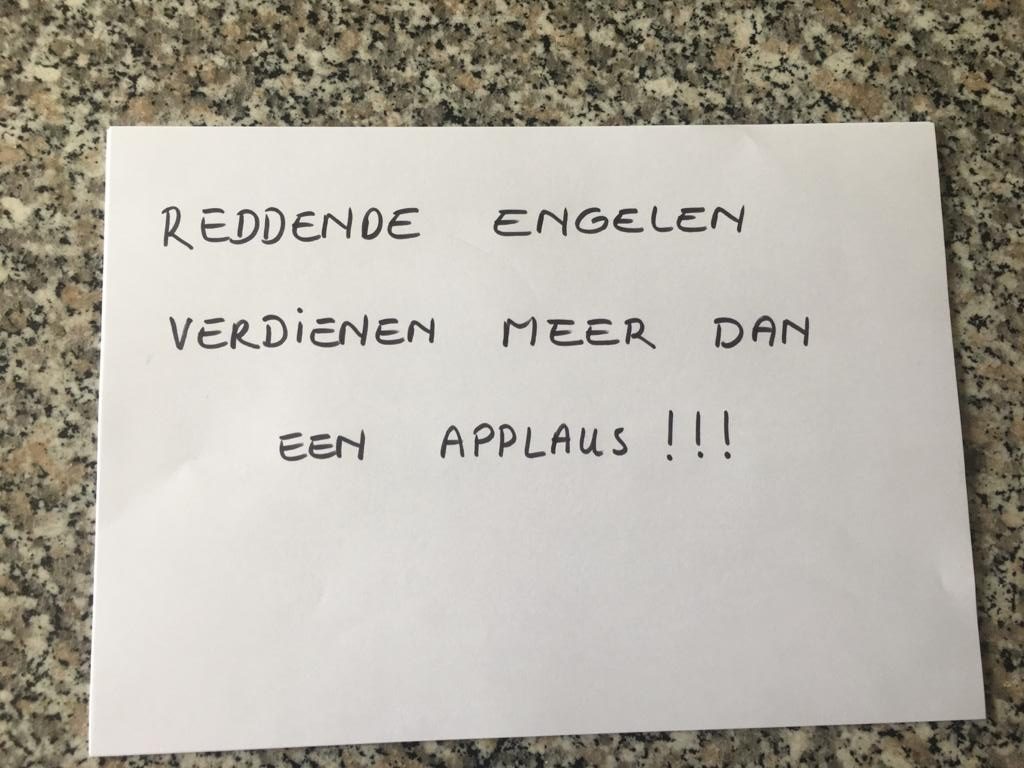 REDDENDE ENGELEN
VERDiENEN MEER DAN
EEN APPLAUS !!!